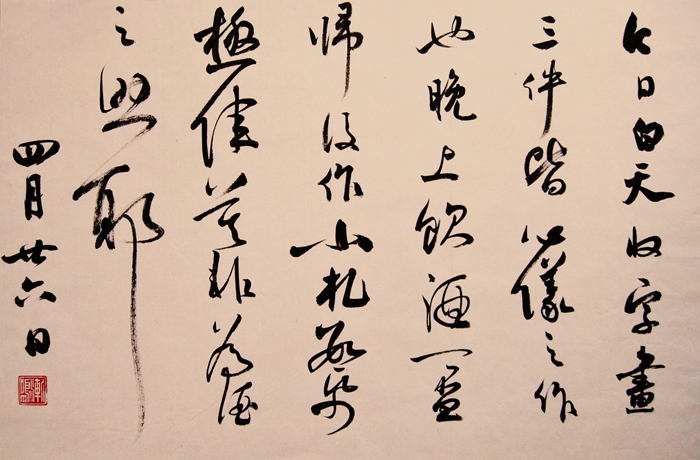 今日白天收字畫
三件皆心儀之作
也晚上飲酒一盃
歸後作小札數帋
極佳莫非為酒
之興耶
四月廿六日